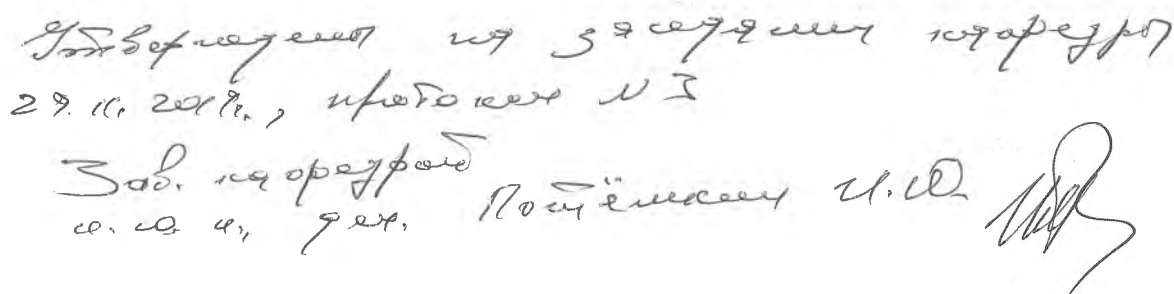 Утверждено на заседании кафедры
протокол N 3
Зав. кафедрой
к.ю.н., доц. Потёмкин И.Ю.